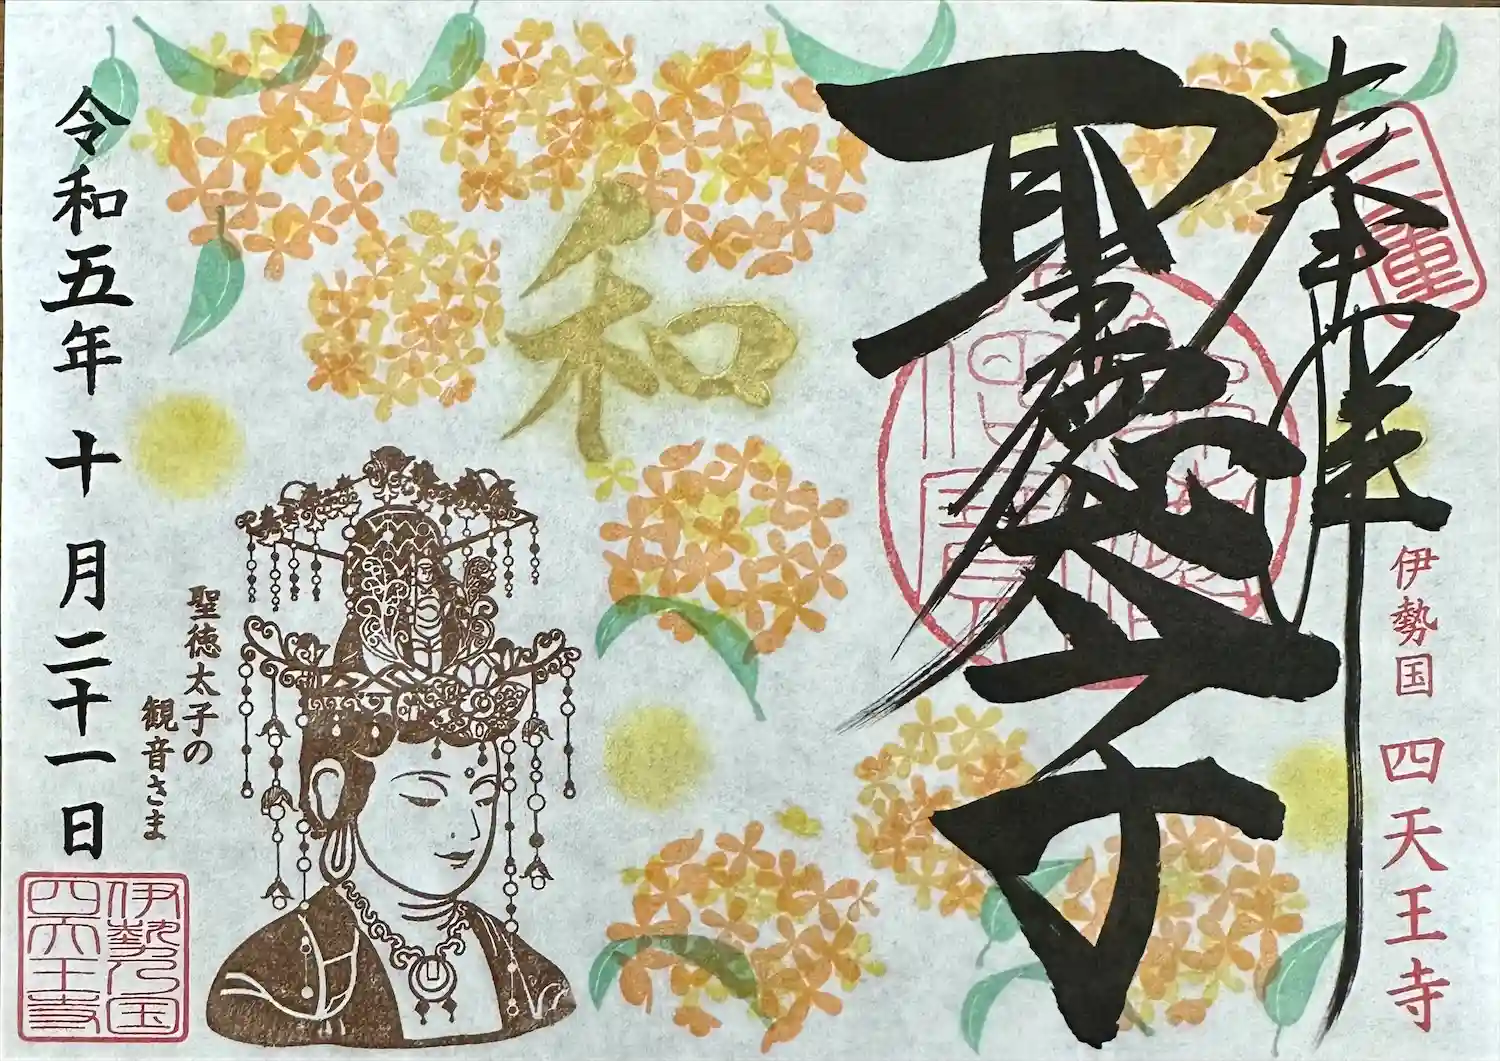 三重
奉拝
聖徳太子
伊勢国 四天王寺
和
聖徳太子の
観音さま
令和五年十月二十一日
伊勢国
四天王寺